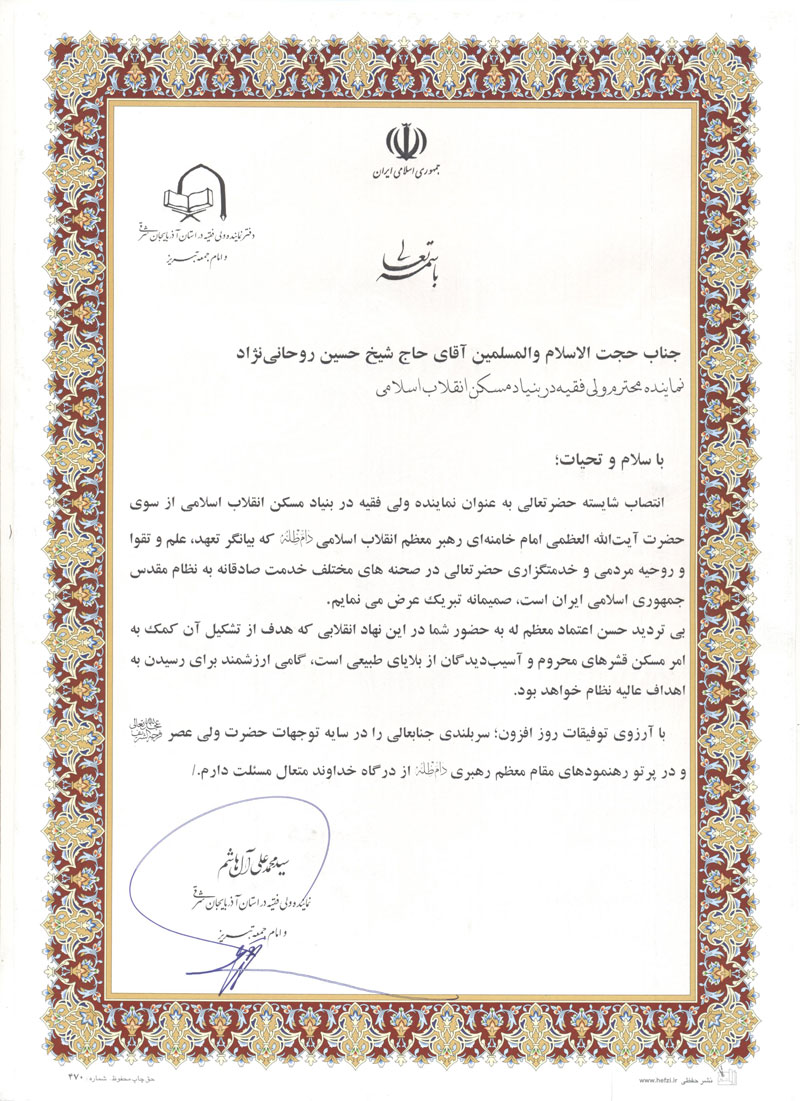 جمهوری اسلامی ایران
دفتر نماینده ولی فقیه در استان آذربایجان شرقی
و امام جمعه تبریز
باسمه تعالی
جناب حجت الاسلام والمسلمین آقای حاج شیخ حسین روحانی‌نژاد
نماینده محترم ولی فقیه در بنیاد مسکن انقلاب اسلامی
با سلام و تحیات؛
انتصاب شایسته حضرتعالی به عنوان نماینده ولی فقیه در بنیاد مسکن انقلاب اسلامی از سوی
حضرت آیت‌الله العظمی امام خامنه‌ای رهبر معظم انقلاب اسلامی دام ظله که بیانگر تعهد، علم و تقوا
و روحیه مردمی و خدمتگزاری حضرتعالی در صحنه های مختلف خدمت صادقانه به نظام مقدس
جمهوری اسلامی ایران است، صمیمانه تبریک عرض می نمایم.
بی تردید حسن اعتماد معظم له به حضور شما در این نهاد انقلابی که هدف از تشکیل آن کمک به
امر مسکن قشرهای محروم و آسیب‌دیدگان از بلایای طبیعی است، گامی ارزشمند برای رسیدن به
اهداف عالیه نظام خواهد بود.
با آرزوی توفیقات روز افزون؛ سربلندی جنابعالی را در سایه توجهات حضرت ولی عصر
و در پرتو رهنمودهای مقام معظم رهبری دام ظله از درگاه خداوند متعال مسئلت دارم./
سید محمد علی آل هاشم
نماینده ولی فقیه در استان آذربایجان شرقی
و امام جمعه تبریز
نشر حفظی www.hefzi.ir
حق چاپ محفوظ - شماره ۴۷۰